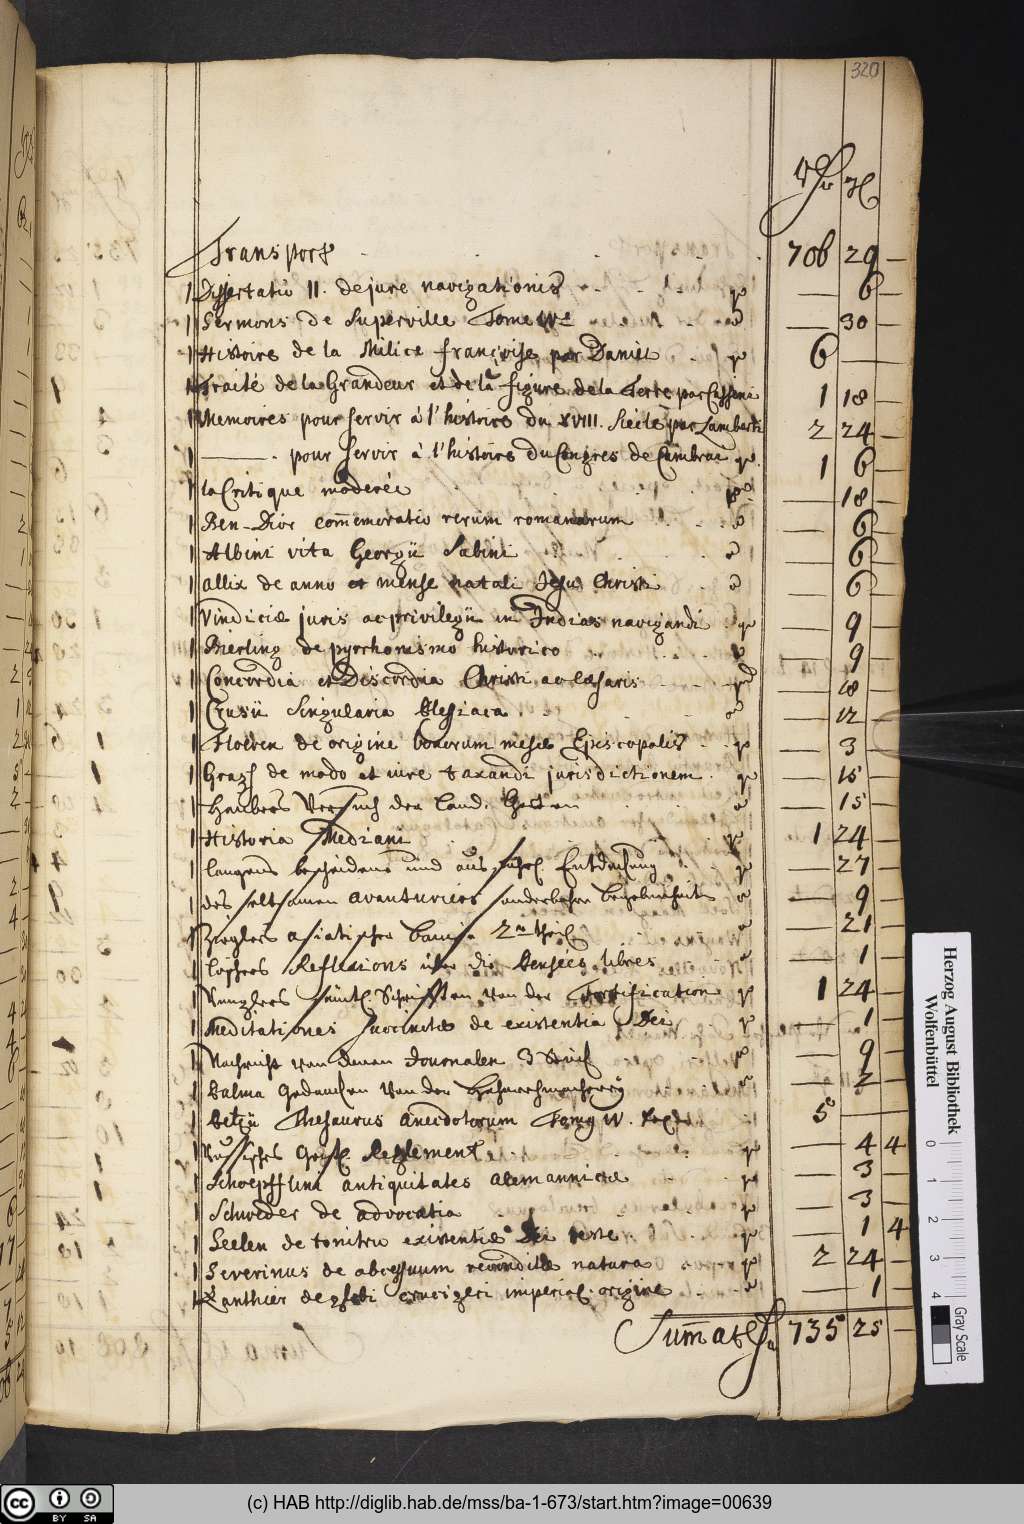 320
Transport 706 29 —
1 Dissertatio II. de jure navigationis — 6 —
1 Sermons de Superville Tome IVe — 30 —
1 Histoire de la Milice françoise par Daniel 6 — —
1 Traité de la Grandeur et de la figure de la Terre par Cassini 1 18 —
1 Memoires pour servir à l'histoire du XVIII. Siecle par Lamberti 2 24 —
1 —— pour servir à l'histoire du Congres de Cambrai 1 6 —
1 la Critique moderée — 18 —
1 Ben-Dior com̄emoratio rerum romanarum — 6 —
1 Albini vita Georgii Sabini — 6 —
1 allix de anno et mense natali Jesu Christi — 6 —
1 Vindiciæ juris ac privilegii in Indias navigandi — 9 —
1 Bierling de pyrrhonismo historico — 9 —
1 Concordia et Discordia Christi ac Cæsaris — 18 —
1 Crusii Singularia Plessiaca — 12 —
1 de origine bonorum mensæ Episcopalis — 3 —
1 de modo et iure taxandi jurisdictionem — 15 —
1 Haubers Versuch der Land. — 15 —
1 Historia Mediani 1 24 —
1 bescheidene und Entdeckung — 27 —
1 des seltsamen avanturiers sonderbahre begebenheiten — 9 —
1 Zieglers asiatischer banise 2ter theil — 21 —
1 Reflexions über die Pensées libres — 1 —
1 Schrifften von der Fortification 1 24 —
1 Meditationes succinctæ de existentia Dei — 1 —
1 Nachricht von denen Journalen 3 Stück — 9 —
1 Gedancken von der — 2 —
1 Pezii Thesaurus anecdotorum Tomg IV. 5 — —
1 Russisches Geistl. Reglement — 4 4
1 Schoepfflini antiquitates alemannicæ — 3 —
1 Schroeder de advocatia — 3 —
1 Seelen de tonitru existentiæ Dei teste — 1 4
1 Severinus de abcessuum recondita natura 2 24 —
1 de globi crucigeri imperial. origine — 1 —
Sum̄a 735 25 —
Herzog August Bibliothek
Wolfenbüttel
0 1 2 3 4
Gray Scale
CC BY SA
(c) HAB http://diglib.hab.de/mss/ba-1-673/start.htm?image=00639